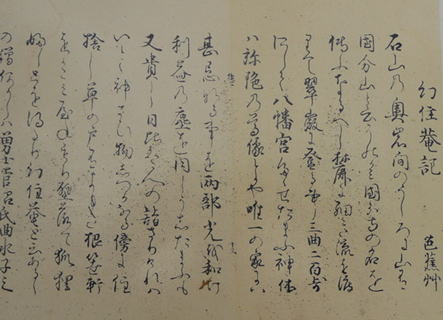 幻住菴記 芭蕉艸
石山乃奥岩間のうしろに山あり
国分山と云そのかみ国分寺の名を
傳ふなるへし麓に細き流を渡
りて翠微に登る事三曲二百歩
にして八幡宮たゝせたまふ神体
ハ弥陀の尊像とかや唯一の家にハ
甚忌なる事を両部光を和け
利益の塵を同しうしたまふも
又貴し日比は人の詣さりけれハ
いとゝ神さひ物しつかなる傍に住
捨し草の戸有よもき根笹軒
をかこミ屋ねもり壁落て狐狸
ふしとを得たり幻住菴と云あるし
の僧なにかしハ勇士菅沼氏曲水子之